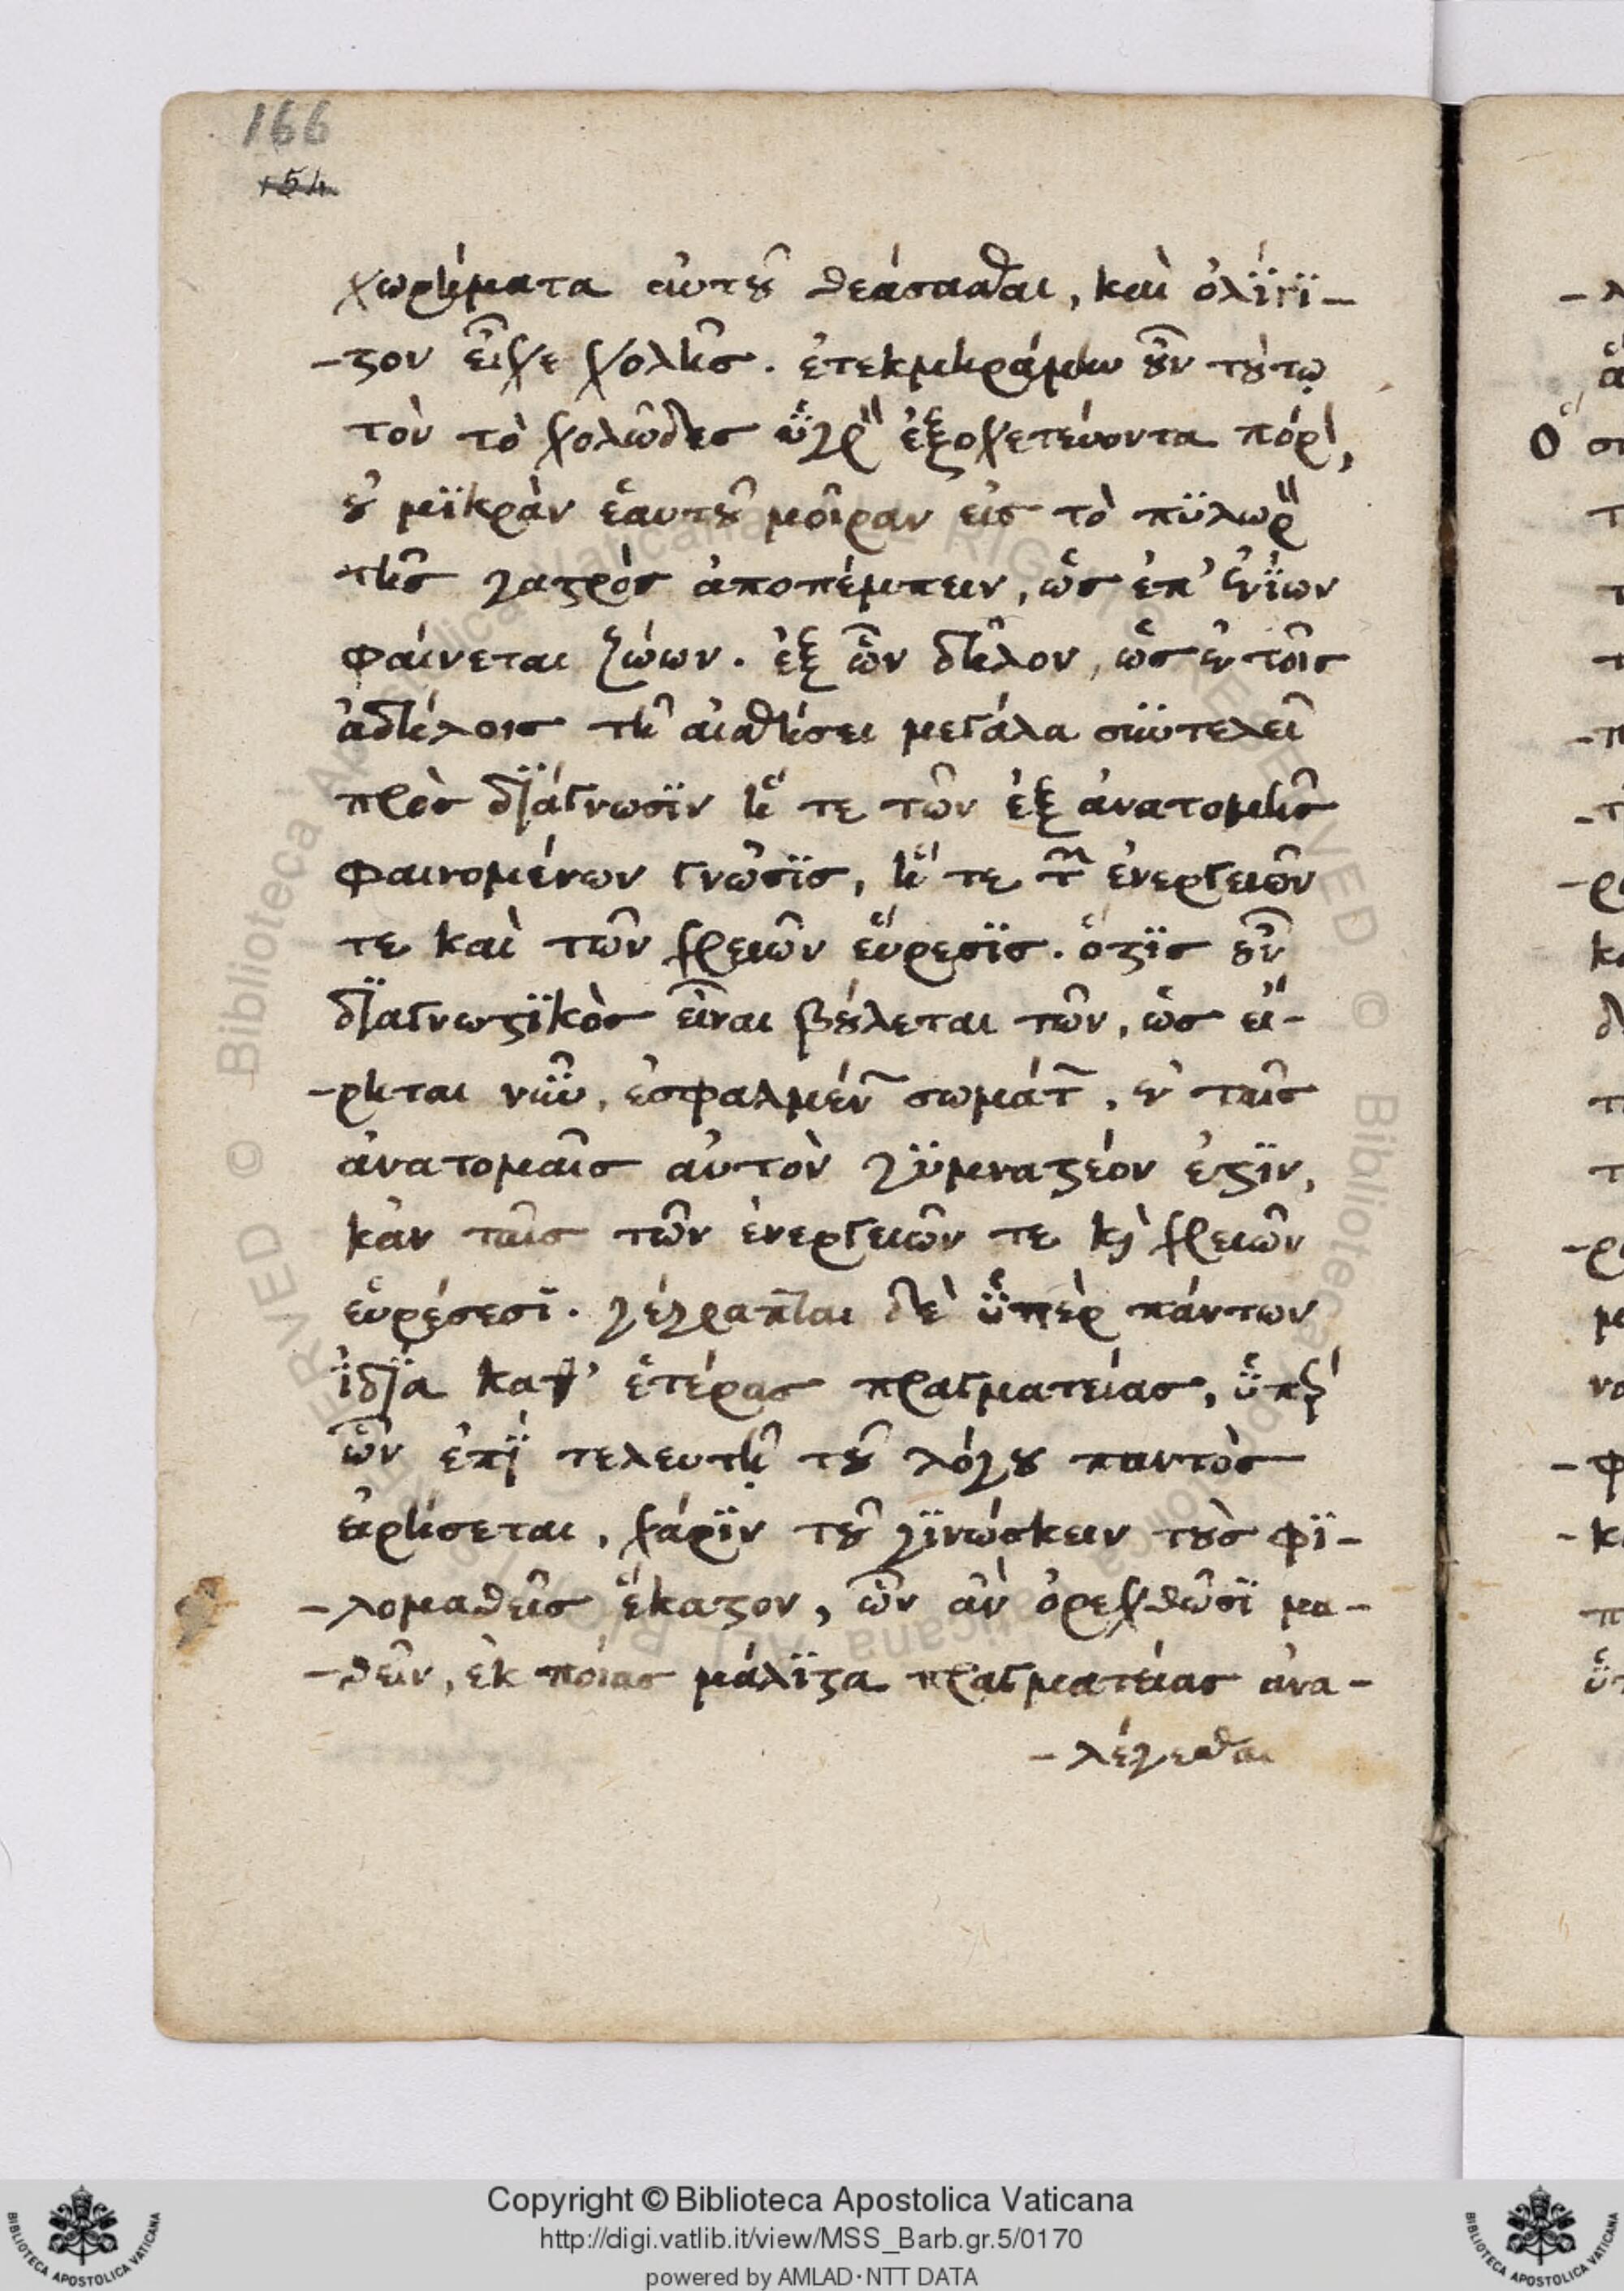 166
154
χωρήματα αὐτοῦ θεάσασθαι, καὶ ὀλίγι-
-στον εἶχε χολῆς. ἐτεκμηράμην οὖν τούτῳ
τὸν τὸ χολῶδες ὑγρὸν ἐξοχετεύοντα πόρον,
οὐ μϊκρὰν ἑαυτοῦ μοῖραν εἰς τὸ πϋλωρὸν
τῆς γαστρὸς ἀποπέμπειν, ὡς ἐπ' ἐνΐων
φαίνεται ζώων. ἐξ ὧν δῆλον, ὡς ἐν τοῖς
ἀδήλοις τῇ αἰσθήσει μεγάλα συντελεῖ
πρὸς δϊάγνωσϊν ἥ τε τῶν ἐξ ἀνατομῆς
φαινομένων γνῶσϊς, ἥ τε τῶν ἐνεργειῶν
τε καὶ τῶν χρειῶν εὕρεσϊς. ὅστϊς οὖν
δϊαγνωστϊκὸς εἶναι βούλεται τῶν, ὡς εἴ-
-ρηται νῦν, ἐσφαλμένων σωμάτων, ἐν ταῖς
ἀνατομαῖς αὐτὸν γϋμναστέον ἐστϊν,
κἀν ταῖς τῶν ἐνεργειῶν τε καὶ χρειῶν
εὑρέσεσϊ. γέγραπται δὲ ὑπὲρ πάντων
ἰδϊα καθ' ἑτέρας πραγματείας, ὑπὲρ
ὧν ἐπῒ τελευτῇ τοῦ λόγου παντὸς
εἰρήσεται, χάρϊν τοῦ γϊνώσκειν τοὺς φϊ-
-λομαθεῖς ἕκαστον, ὧν ἂν ὀρεχθῶσϊ μα-
-θεῖν, ἐκ ποίας μάλϊστα πραγματείας ἀνα-
-λέγεσθαι
Copyright © Biblioteca Apostolica Vaticana
http://digi.vatlib.it/view/MSS_Barb.gr.5/0170
powered by AMLAD·NTT DATA